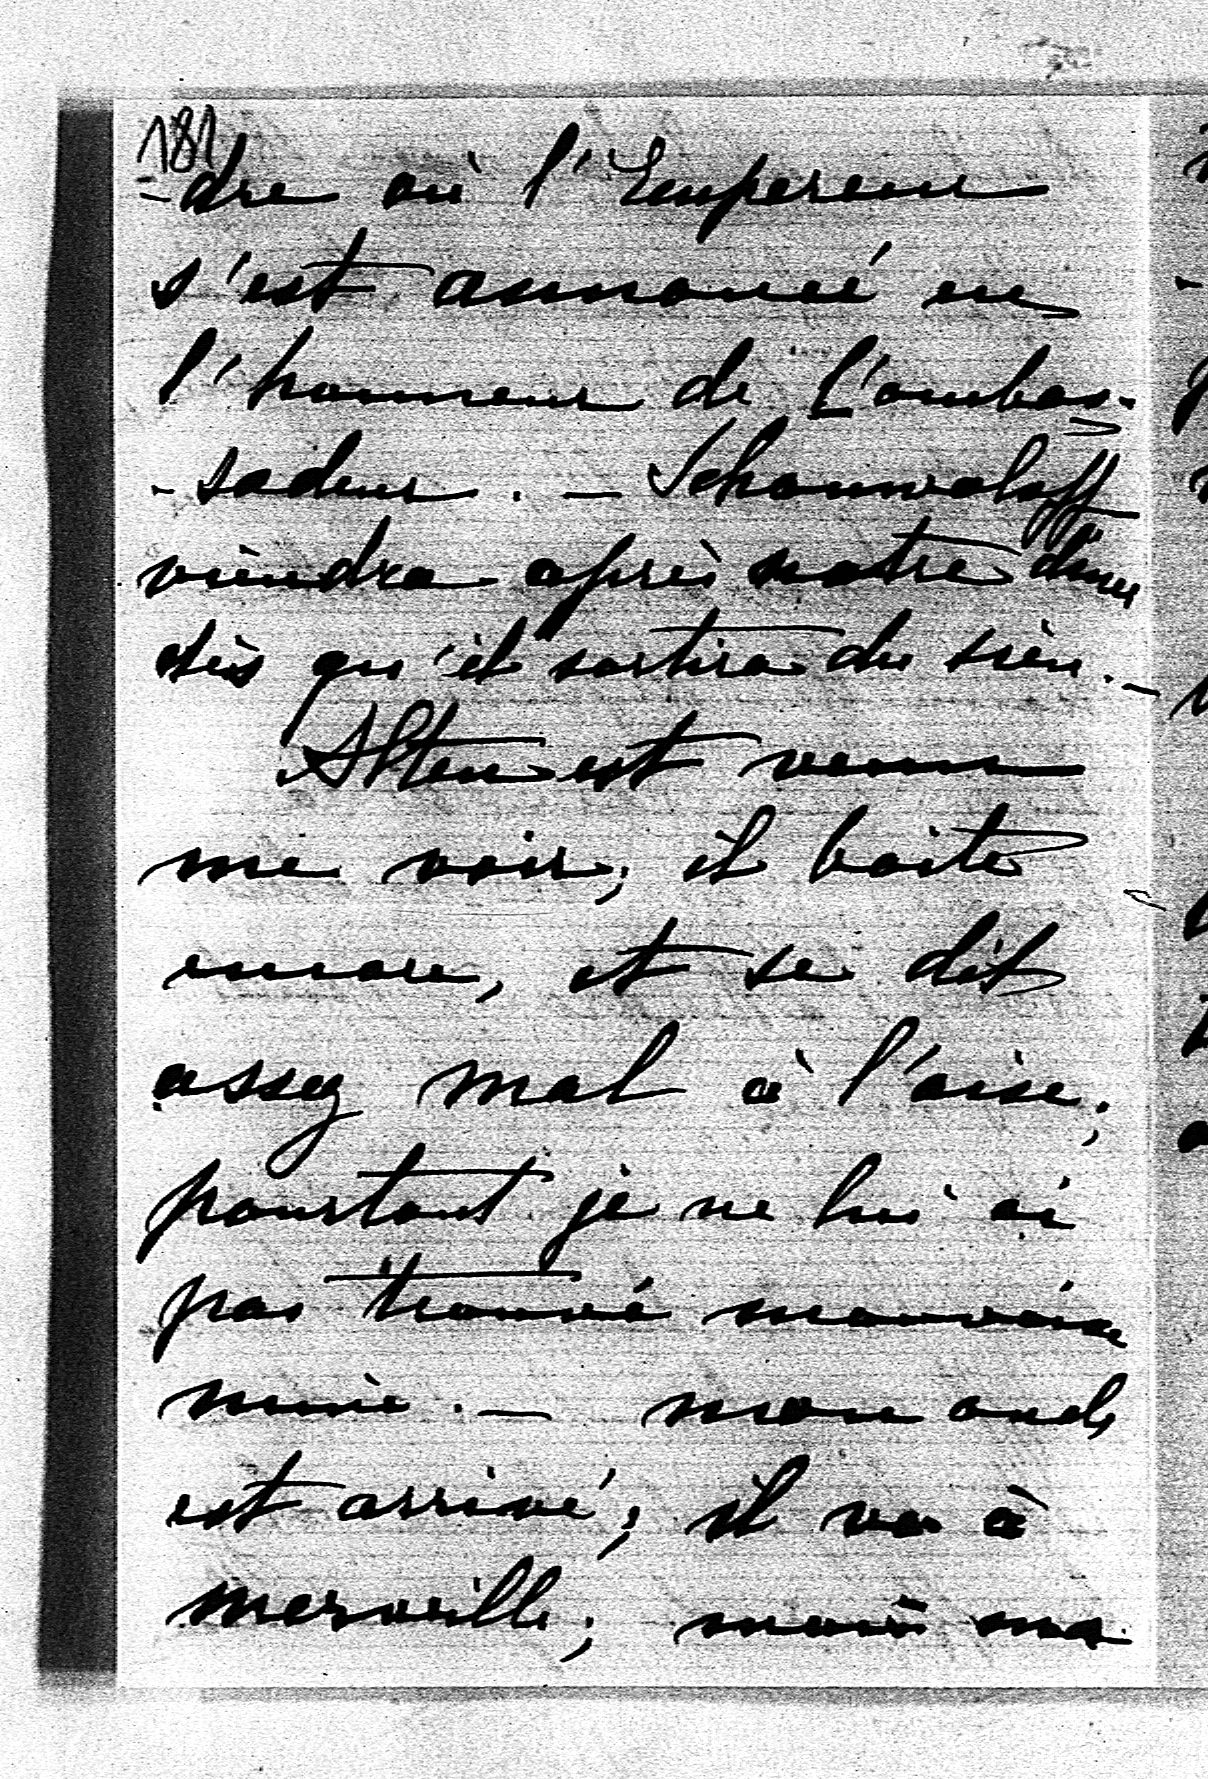 181
-dre où l'Empereur
s'est annoncé en
l'honneur de L'ambas-
-sadeur. — Schouwaloff
viendra après notre diner
dès qu'il sortira du sien. —
Alten est venu
me voir, il boite
encore, et se dit
assez mal à l'aise;
pourtant je ne lui ai
pas trouvé mauvaise
mine. — mon oncle
est arrivé; il va à
merveille; mais ma